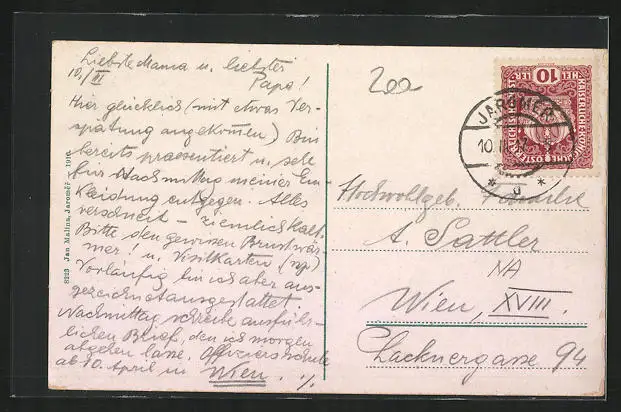 Liebste Mama u. liebster
10./III Papa!
Hier glücklich (mit etwas Ver-
spätung angekommen) Bin
bereits praesentiert u. sehe
für Nachmittag meiner Ein-
kleidung entgegen. Alles
verschneit – ziemlich kalt.
Bitte den gewissen Brustwär-
mer! u. Visitkarten
Vorläufig bin ich aber aus-
gezeichnet ausgestattet.
Nachmittag schreibe ausführ-
lichen Brief, den ich morgen
abgehen lasse. Offiziersschule
ab 10. April in Wien. ./.
8223 Jan Malina, Jaroměř 1916
200
10 HELLER 10
KAISERLICHE KÖN.
JAROMĚŘ
10.III.
* g *
Hochwohlgeb. Familie
A. Sattler
Wien, XVIII.
Lacknergasse 94